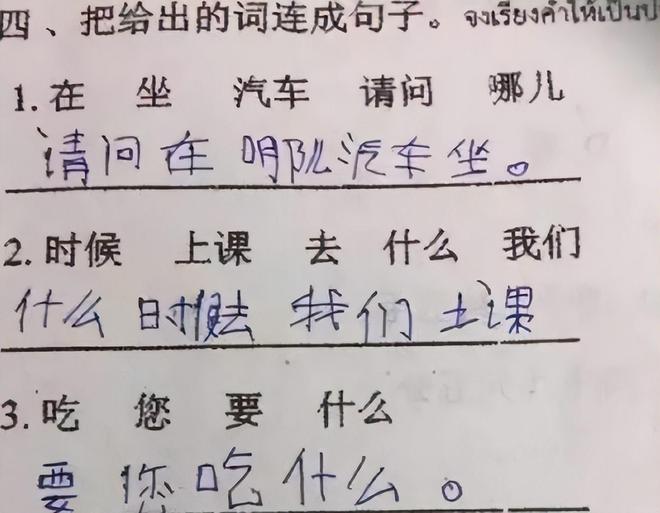 四、把给出的词连成句子。จงเรียงคำให้เป็นป
1. 在 坐 汽车 请问 哪儿
请问在哪儿汽车坐。
2. 时候 上课 去 什么 我们
什么时候去我们上课
3. 吃 您 要 什么
要您吃什么。